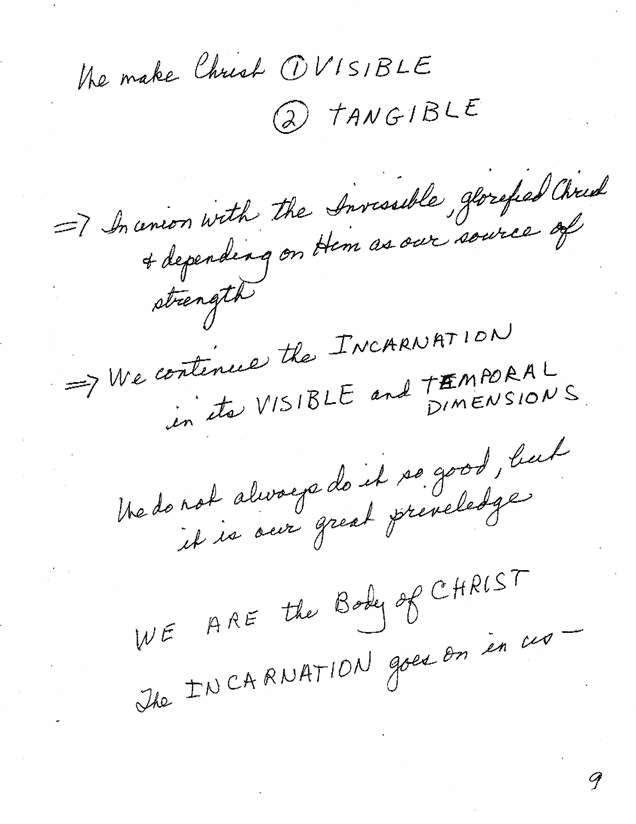 We make Christ ① VISIBLE
② TANGIBLE
=> In union with the Invissible, glorefied Christ
& depending on Him as our source of
strength
=> We continue the INCARNATION
in its VISIBLE and TEMPORAL
DIMENSIONS
We do not always do it so good, but
it is our great preveledge
WE ARE the Body of CHRIST
The INCARNATION goes on in us —
9